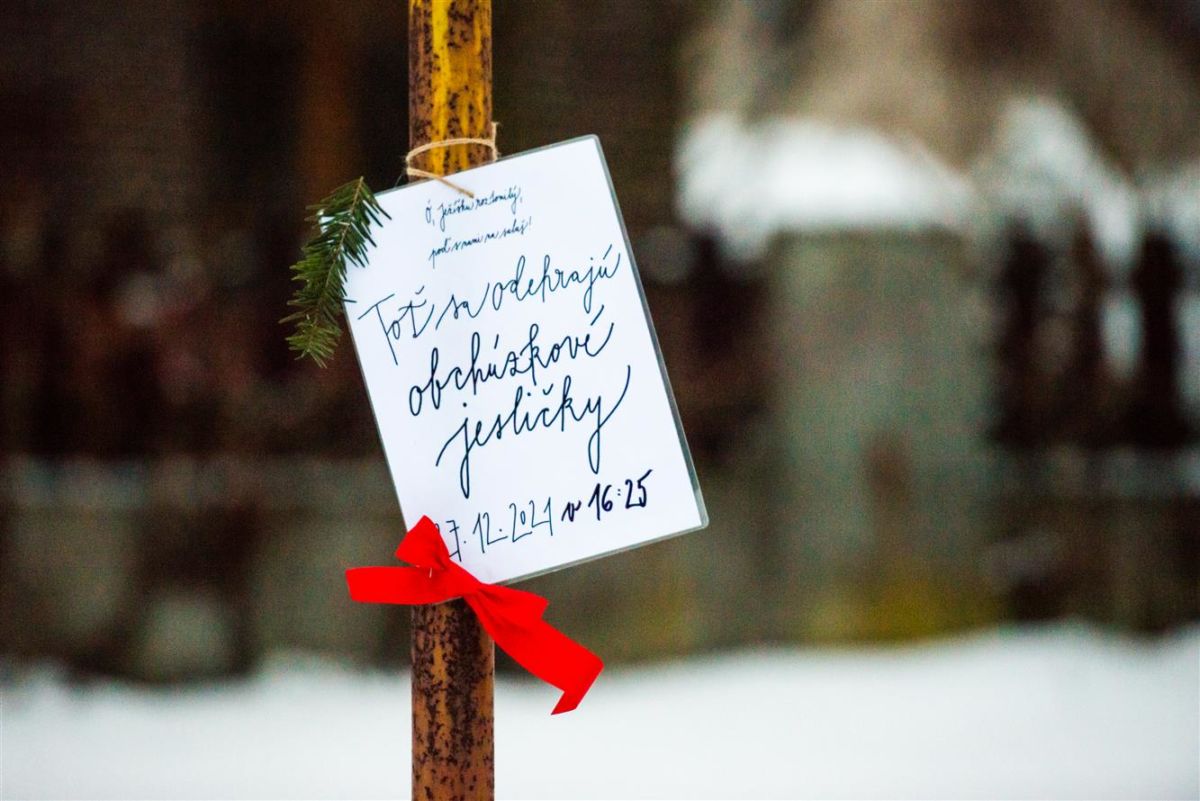 Ó, Ježíšku roztomilý,
poď s nami na salaš!
Toť sa odehrajú
obchúzkové
jesličky
27.12.2021 v 16:25